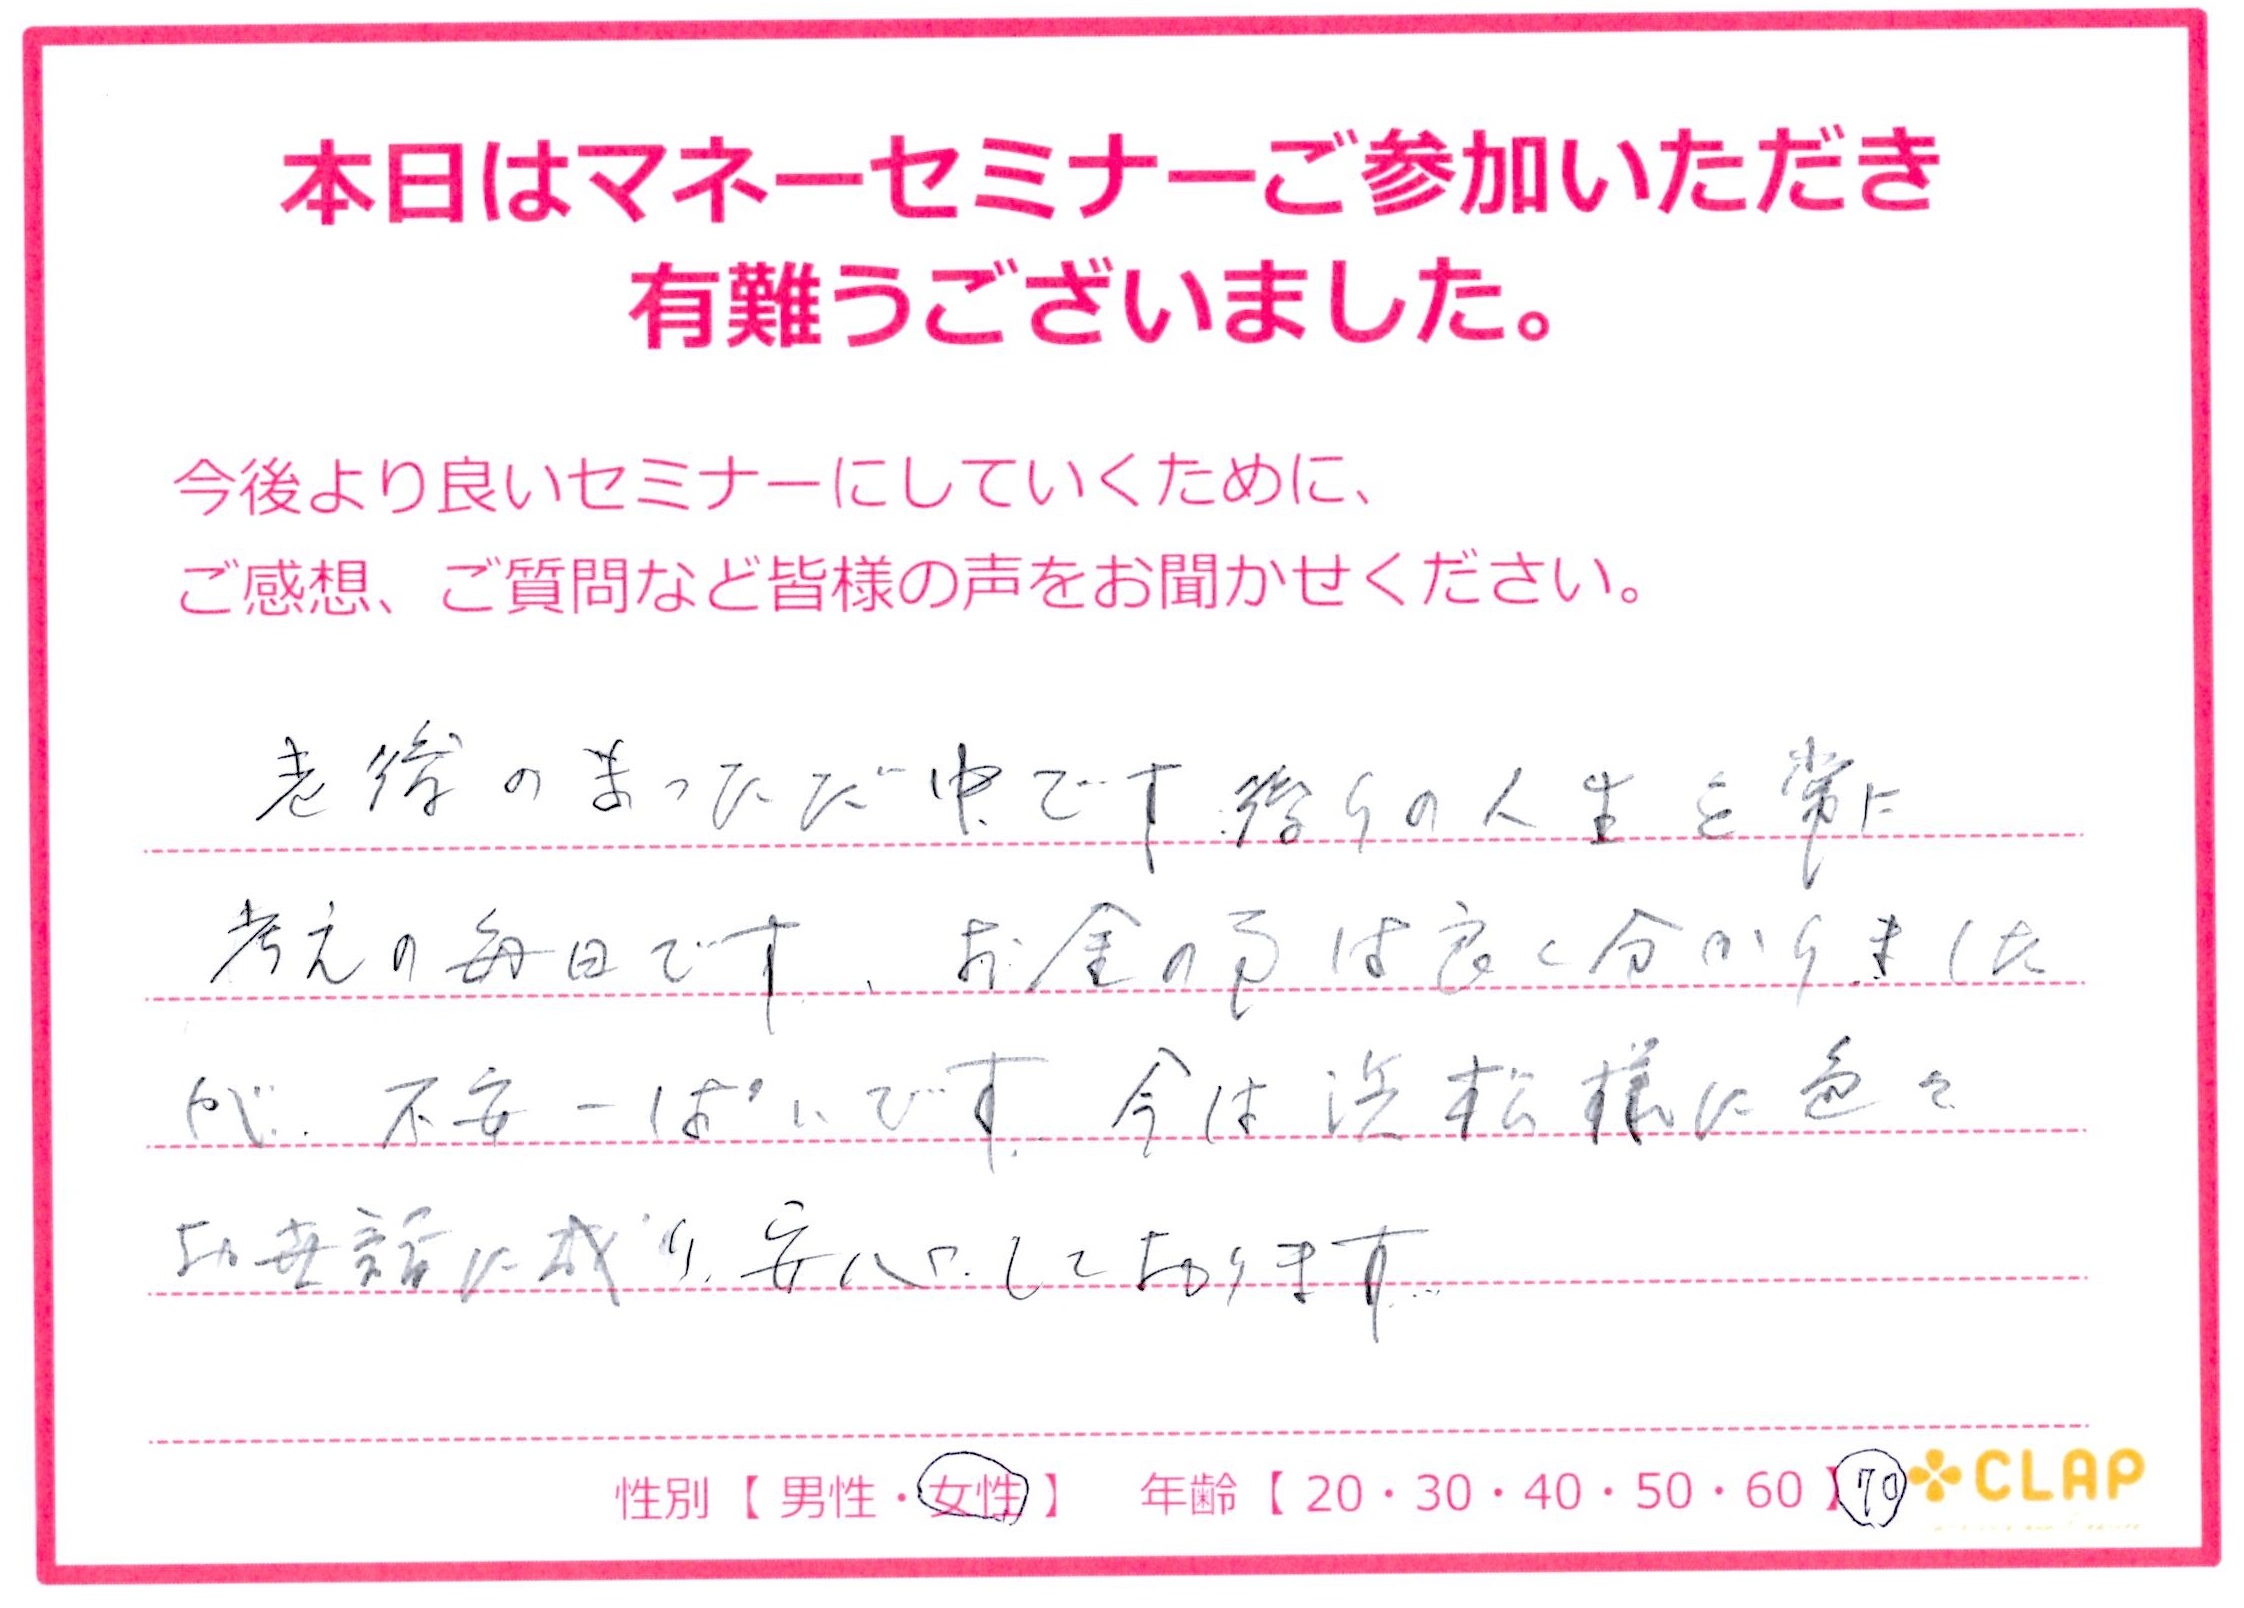 本日はマネーセミナーご参加いただき
有難うございました。
今後より良いセミナーにしていくために、
ご感想、ご質問など皆様の声をお聞かせください。
老後のまっただ中です 残りの人生を常に
考えの毎日です、お金の事は良く分かりました
が、不安一ぱいです 今は浜松様に色々
お世話に成り、安心しております
性別【 男性・女性 】 年齢【 20・30・40・50・60 】70 CLAP